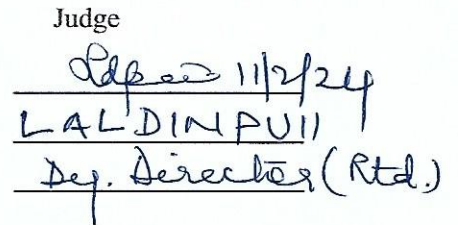 Judge
11/2/24
LALDINPUII
Dy. Director (Rtd.)